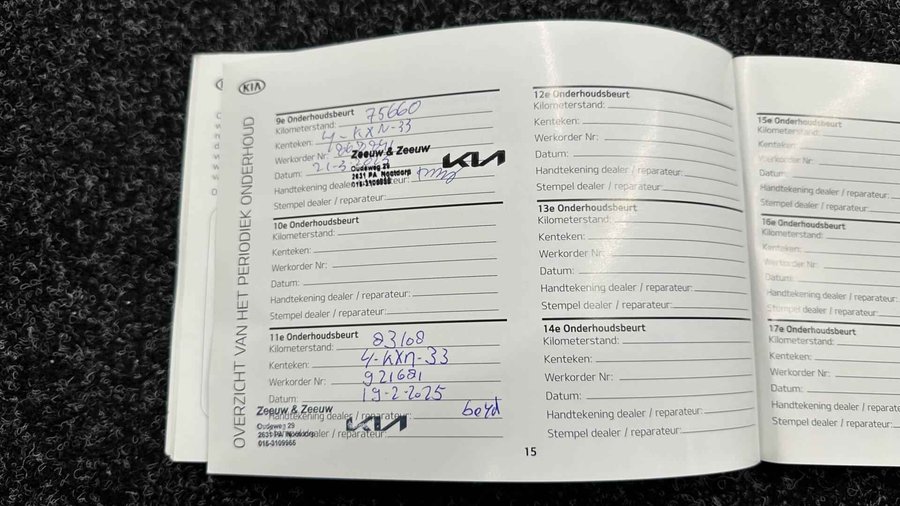 KIA
OVERZICHT VAN HET PERIODIEK ONDERHOUD
9e Onderhoudsbeurt
Kilometerstand: 75660
Kenteken: 4-KXN-33
Werkorder Nr:
Datum: 21-3
Zeeuw & Zeeuw
Oudeweg 29
2631 PA Nootdorp
015-3109965
KIA
Handtekening dealer
Stempel dealer / reparateur:
10e Onderhoudsbeurt
Kilometerstand:
Kenteken:
Werkorder Nr:
Datum:
Handtekening dealer / reparateur:
Stempel dealer / reparateur:
11e Onderhoudsbeurt
Kilometerstand: 83108
Kenteken: 4-KXN-33
Werkorder Nr: 921681
Datum: 19-2-2025
Zeeuw & Zeeuw
Handtekening dealer / reparateur:
Oudeweg 29
2631 PA Nootdorp
dealer / reparateur:
015-3109965
KIA
12e Onderhoudsbeurt
Kilometerstand:
Kenteken:
Werkorder Nr:
Datum:
Handtekening dealer / reparateur:
Stempel dealer / reparateur:
13e Onderhoudsbeurt
Kilometerstand:
Kenteken:
Werkorder Nr:
Datum:
Handtekening dealer / reparateur:
Stempel dealer / reparateur:
14e Onderhoudsbeurt
Kilometerstand:
Kenteken:
Werkorder Nr:
Datum:
Handtekening dealer / reparateur:
Stempel dealer / reparateur:
15
15e Onderhoudsbeurt
Kilometerstand:
Kenteken:
Werkorder Nr:
Datum:
Handtekening dealer / reparateur:
Stempel dealer / reparateur:
16e Onderhoudsbeurt
Kilometerstand:
Kenteken:
Werkorder Nr:
Datum:
Handtekening dealer / reparat
Stempel dealer / reparateur:
17e Onderhoudsbeurt
Kilometerstand:
Kenteken:
Werkorder Nr:
Datum:
Handtekening dealer / reparat
Stempel dealer / reparateur: